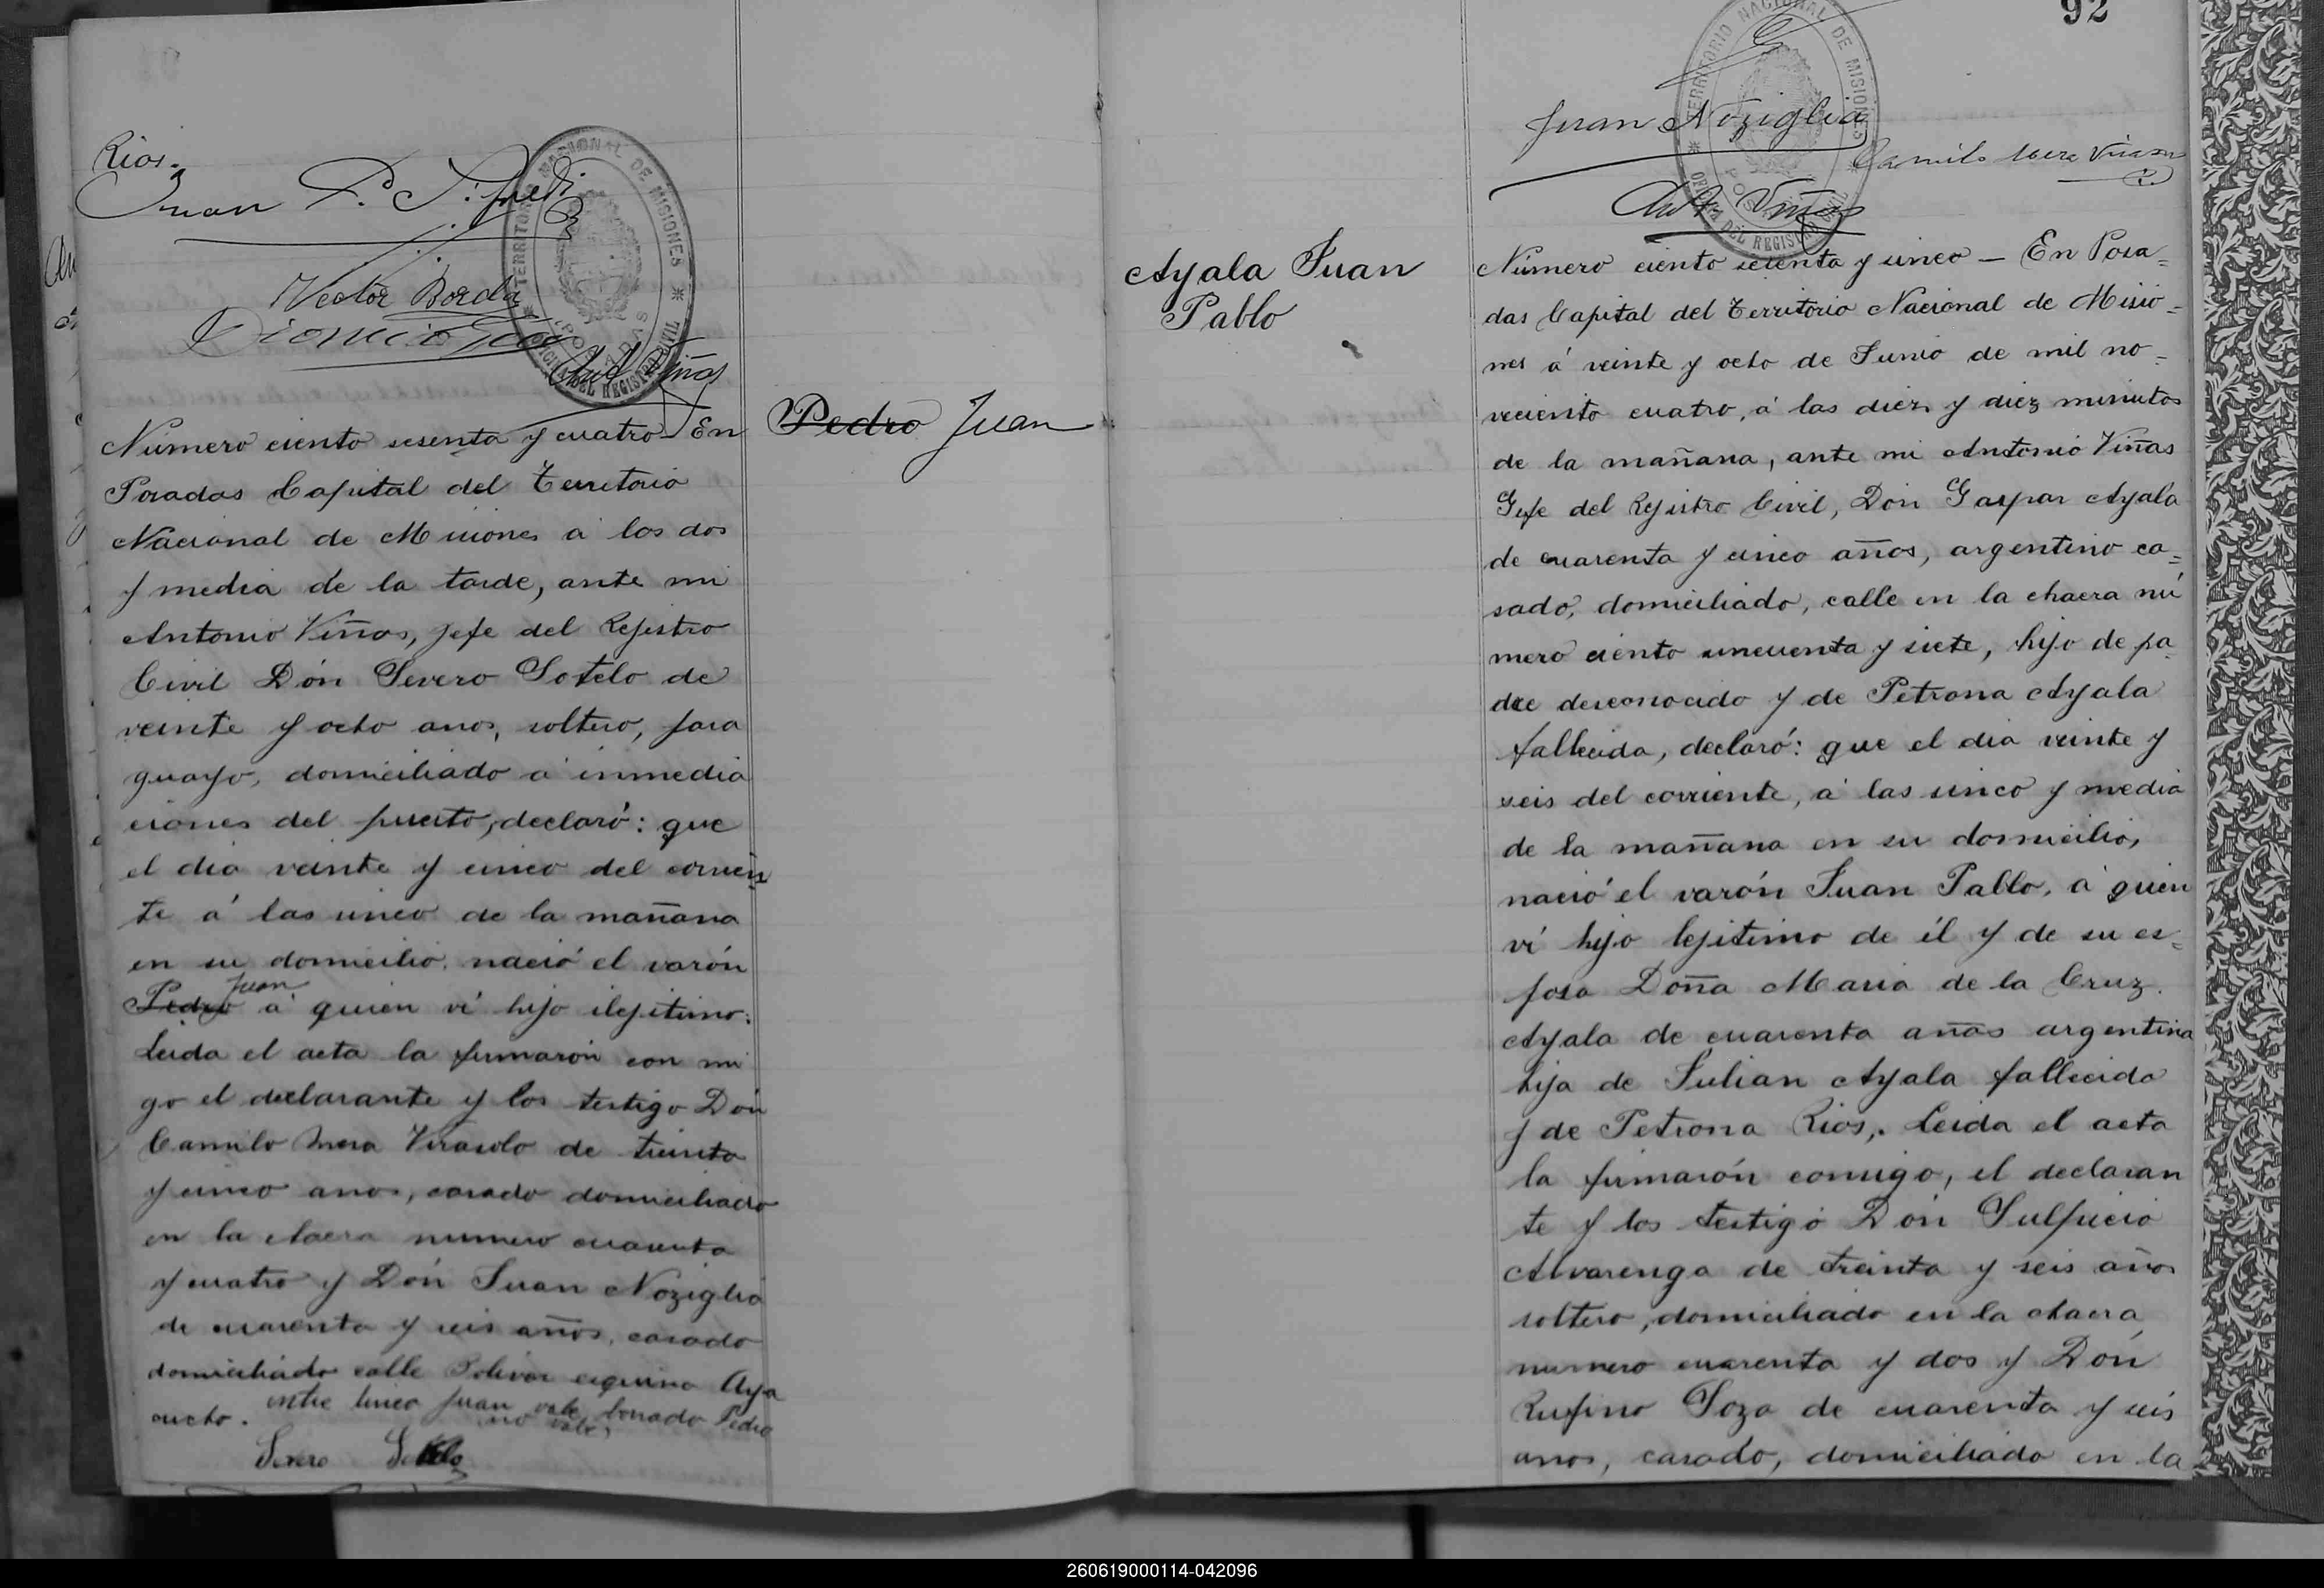 Rios.
Juan P.
Hector Borda
Dionicio
Ant Viñas
TERRITORIO NACIONAL DE MISIONES
POSADAS
OFICINA DEL REGISTRO CIVIL
Número ciento sesenta y cuatro - En
Posadas Capital del Territorio
Nacional de Misiones á las dos
y media de la tarde, ante mi
Antonio Viñas, jefe del Rejistro
Civil Dón Severo Sotelo de
veinte y ocho anos, soltero, para
guayo, domiciliado á inmedia
ciones del puerto, declaró: que
el dia veinte y cinco del corrien
te á las cinco de la mañana
en su domicilio, nació el varón
Juan
Pedro á quien ví hijo ilejitimo:
Leida el acta la firmarón con mi
go el declarante y los testigo Dón
Camilo Mera Virasolo de treinta
y cinco anos, casado domiciliado
en la chacra numero cuarenta
y cuatro y Dón Juan Noziglia
de cuarenta y seis años, casado
domiciliado calle Bolivar esquina Aya
cucho. entre linea Juan vale borrado Pedro
no vale
Severo Sotelo
Pedro Juan
92
TERRITORIO NACIONAL DE MISIONES
POSADAS
OFICINA DEL REGISTRO CIVIL
Juan Noziglia
Camilo Mera
Ant Viñas
Ayala Juan
Pablo
Número ciento sesenta y cinco — En Posa=
das Capital del Territorio Nacional de Misio=
nes á veinte y ocho de Junio de mil no=
veciento cuatro, á las diez y diez minutos
de la mañana, ante mi Antonio Viñas
Gefe del Rejistro Civil, Dón Gaspar Ayala
de cuarenta y cinco años, argentino ca=
sado, domiciliado, calle en la chacra nú
mero ciento cincuenta y siete, hijo de pa
dre desconocido y de Petrona Ayala
fallecida, declaró: que el dia veinte y
seis del corriente, á las cinco y media
de la mañana en su domicilio,
nació el varón Juan Pablo, á quien
ví hijo lejitimo de él y de su es=
posa Doña Maria de la Cruz.
Ayala de cuarenta años argentina
hija de Julian Ayala fallecido
y de Petrona Rios,. Leida el acta
la firmarón comigo, el declaran
te y los testigo Dón Sulpicio
Alvarenga de treinta y seis años
soltero, domiciliado en la chacra
numero cuarenta y dos y Dón
Rufino Soza de cuarenta y seis
anos, casado, domiciliado en la
260619000114-042096